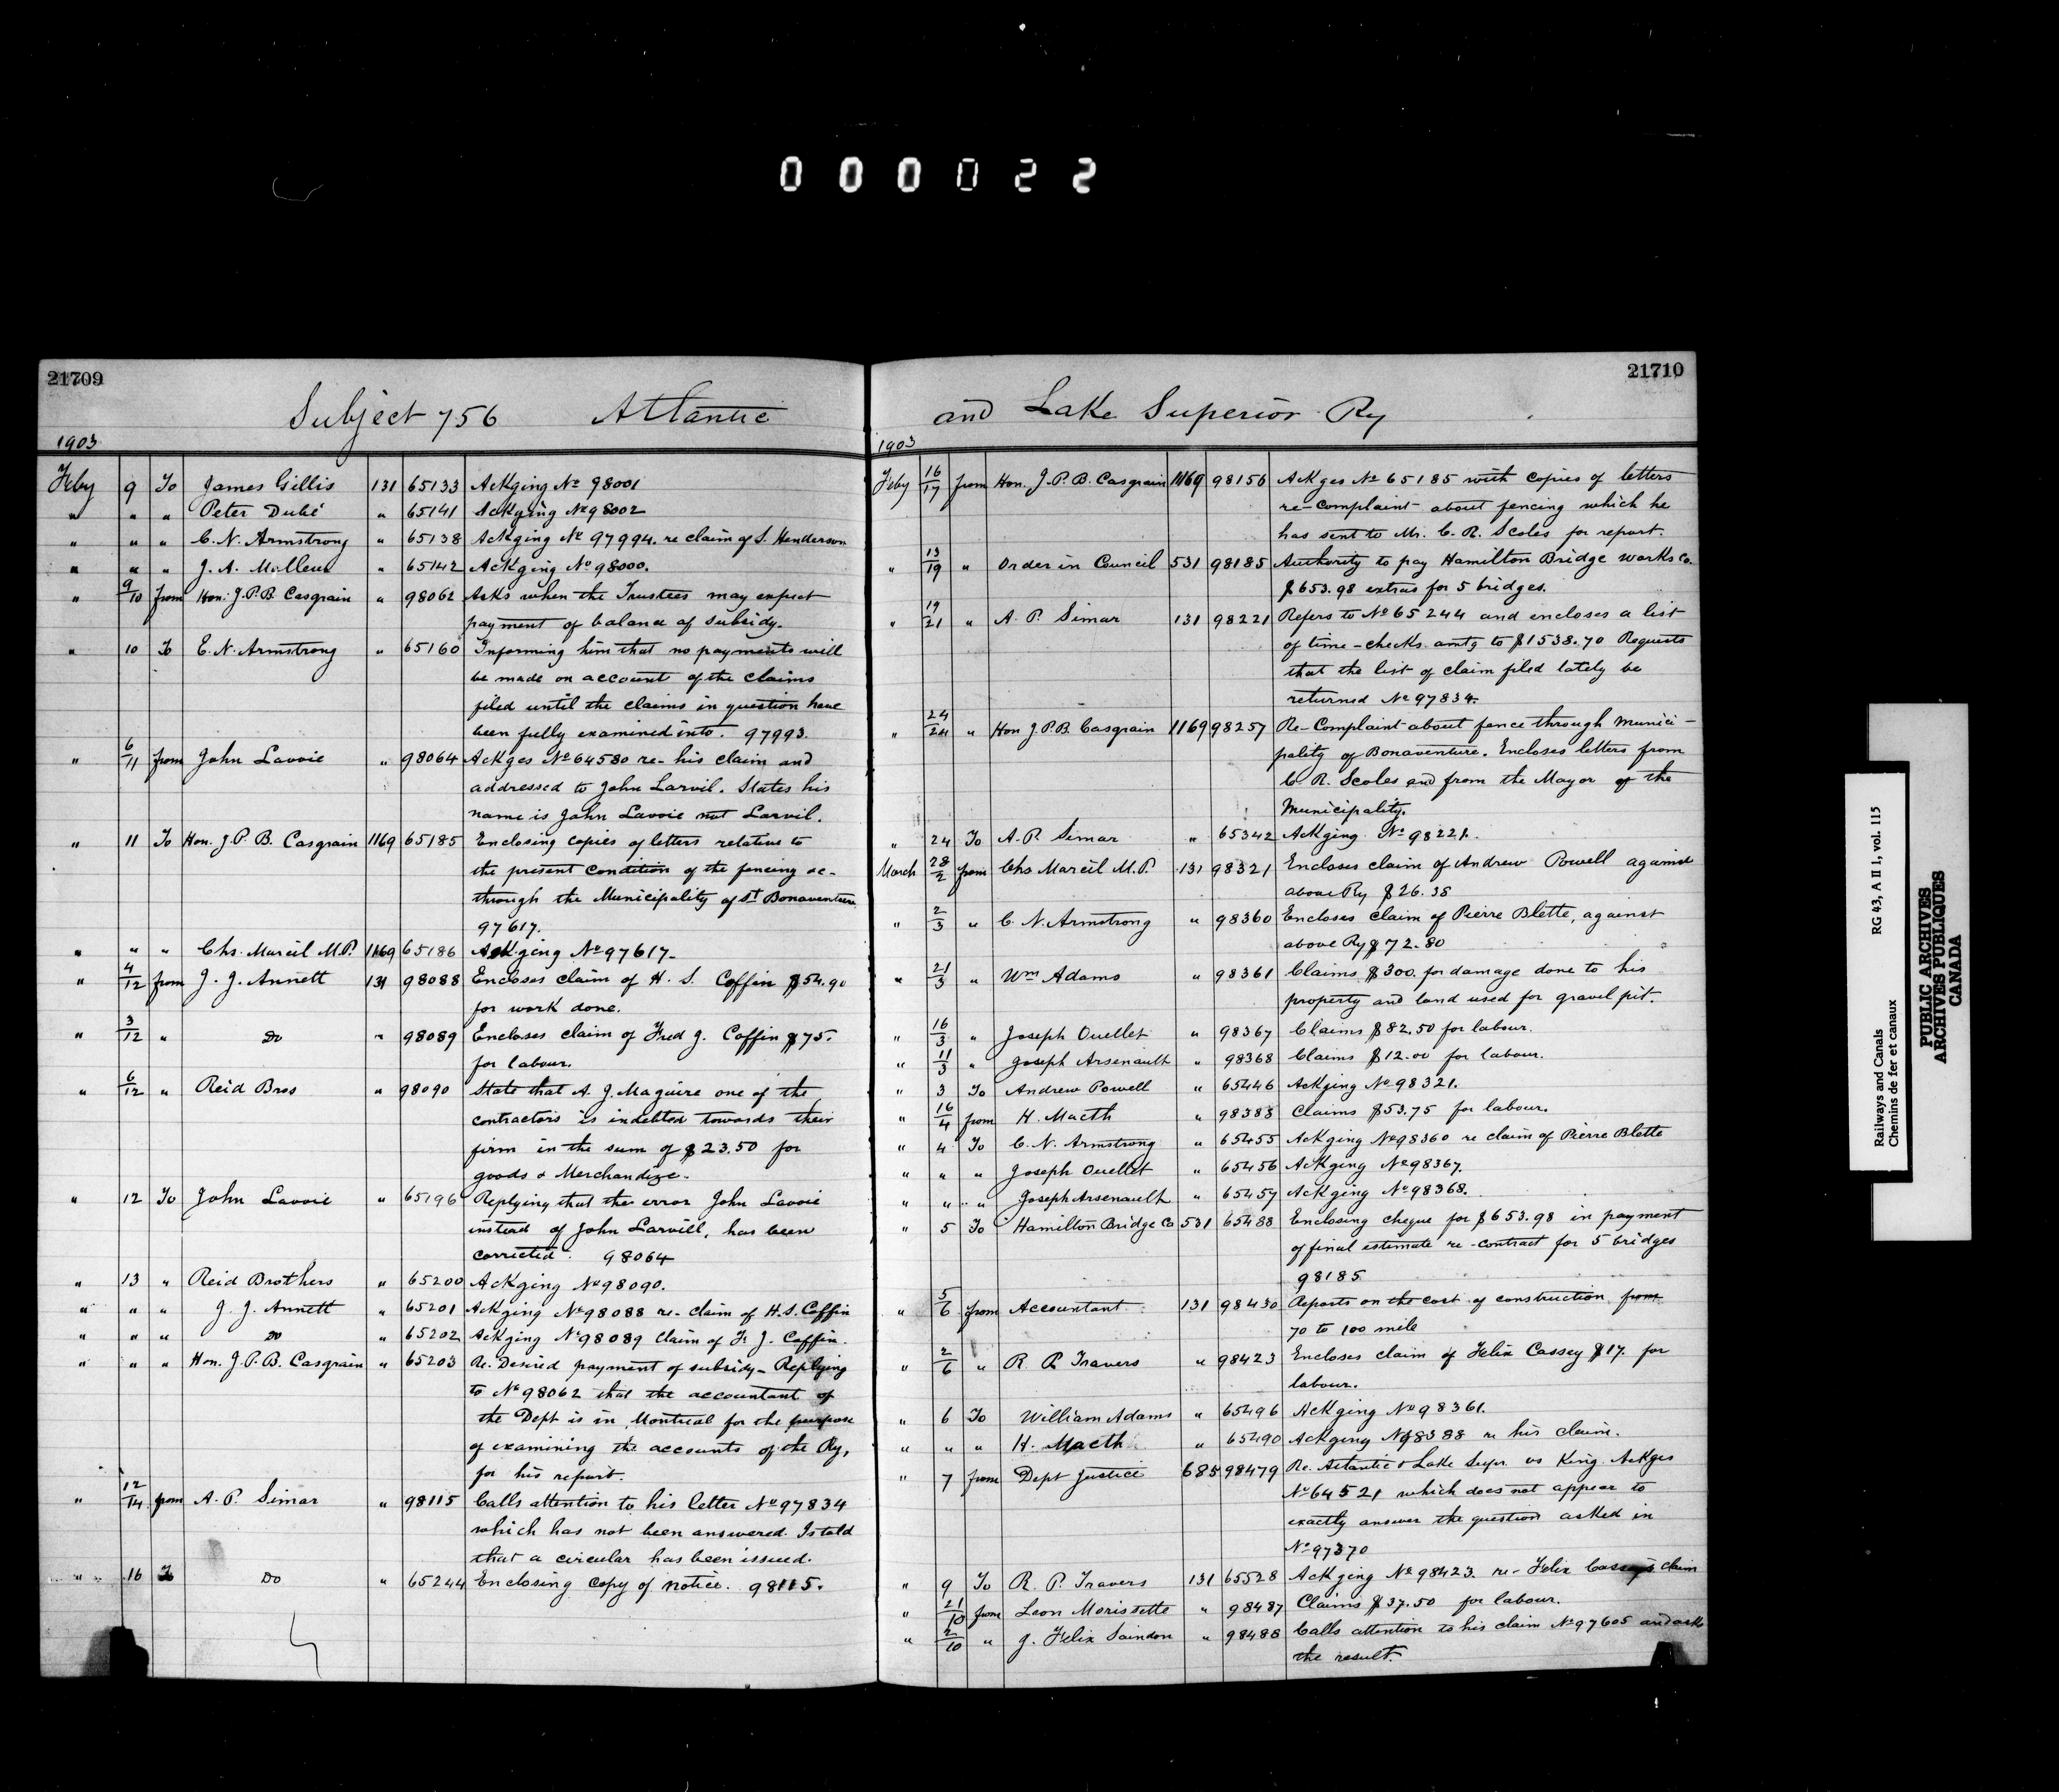 000022
21709
Subject 756 Atlantic
1903
Feby 9 To James Gillis 131 65133 Ackging No 98001
" " " Peter Dubé " 65141 Ackging No 98002
" " " C. N. Armstrong " 65138 Ackging No 97994. re claim of S. Henderson
" " " J. A. " 65142 Ackging No 98000.
" 9/10 from Hon: J.P.B. Casgrain " 98062 Asks when the Trustees may expect
payment of balance of subsidy.
" 10 To C. N. Armstrong " 65160 Informing him that no payments will
be made on account of the claims
filed until the claims in question have
been fully examined into. 97993.
" 6/11 from John Lavoie " 98064 Ackges No 64580 re- his claim and
addressed to John Larvil. States his
name is John Lavoie not Larvil.
" 11 To Hon. J. P. B. Casgrain 1169 65185 Enclosing copies of letters relative to
the present condition of the fencing &c-
through the Municipality of St Bonaventure
97617.
" " " Chs. Marcil M.P. 1169 65186 Ackging No 97617-
" 4/12 from J. J. Annett 131 98088 Encloses claim of H. S. Coffin $54.90
for work done.
" 3/12 " Do " 98089 Encloses claim of Fred J. Coffin $75.
for labour.
" 6/12 " Reid Bros " 98090 State that A. J. Maguire one of the
contractors is indebted towards their
firm in the sum of $23.50 for
goods & Merchandize.
" 12 To John Lavoie " 65196 Replying that the error John Lavoie
instead of John Larvill, has been
corrected. 98064
" 13 " Reid Brothers " 65200 Ackging No 98090.
" " " J. J. Annett " 65201 Ackging No 98088 re- claim of H.S. Coffin
" " " Do " 65202 Ackging No 98089 claim of F. J. Coffin.
" " " Hon. J. P. B. Casgrain " 65203 Re. Desired payment of subsidy- Replying
to No 98062 that the accountant of
the Dept is in Montreal for the purpose
of examining the accounts of the Ry,
for his report.
" 12/14 from A. P. Simar " 98115 Calls attention to his letter No 97834
which has not been answered. Is told
that a circular has been issued.
" 16 To Do " 65244 Enclosing copy of notice. 98115.
21710
and Lake Superior Ry
1903
Feby 16/17 from Hon. J. P. B. Casgrain 1169 98156 Ackges No 65185 with copies of letters
re-complaint about fencing which he
has sent to Mr. C. R. Scoles for report.
" 13/19 " Order in Council 531 98185 Authority to pay Hamilton Bridge works Co.
$653.98 extras for 5 bridges.
" 19/21 " A. P. Simar 131 98221 Refers to No 65244 and encloses a list
of time-checks amtg to $1538.70 Requests
that the list of claim filed lately be
returned No 97834.
" 24/24 " Hon J.P.B. Casgrain 1169 98257 Re-Complaint about fence through Munici-
pality of Bonaventure. Encloses letters from
C. R. Scoles and from the Mayor of the
Municipality.
" 24 To A. P. Simar " 65342 Ackging No 98221.
March 28/2 from Chs Marcil M.P. 131 98321 Encloses claim of Andrew Powell against
above Ry $26.38
" 2/3 " C. N. Armstrong " 98360 Encloses claim of Pierre Blette, against
above Ry $72.80
" 21/3 " Wm Adams " 98361 Claims $300. for damage done to his
property and land used for gravel pit.
" 16/3 " Joseph Ouellet " 98367 Claims $82.50 for labour.
" 11/3 " Joseph Arsenault " 98368 Claims $12.00 for labour.
" 3 To Andrew Powell " 65446 Ackging No 98321.
" 16/4 from H. Macth " 98388 Claims $53.75 for labour.
" 4 To C. N. Armstrong " 65455 Ackging No 98360 re claim of Pierre Blette
" " " Joseph Ouellet " 65456 Ackging No 98367.
" " " Joseph Arsenault " 65457 Ackging No 98368.
" 5 To Hamilton Bridge Co 531 65488 Enclosing cheque for $653.98 in payment
of final estimate re-contract for 5 bridges
98185
" 5/6 from Accountant 131 98430 Reports on the cost of construction from
70 to 100 mile
" 2/6 " R. P. Travers " 98423 Encloses claim of Felix Cassey $17. for
labour.
" 6 To William Adams " 65496 Ackging No 98361.
" " " H. Macth " 65490 Ackging No 98388 re his claim.
" 7 from Dept Justice 685 98479 Re. Atlantic & Lake Supr. vs King. Ackges
No 64521 which does not appear to
exactly answer the question asked in
No 97370
" 9 To R. P. Travers 131 65528 Ackging No 98423. re- Felix Cassey's claim
" 21/10 from Leon Morissette " 98487 Claims $37.50 for labour.
" 2/10 " J. Felix Saindon " 98488 Calls attention to his claim No 97605 and asks
the result.
Railways and Canals RG 43, A II 1, vol. 115
Chemins de fer et canaux
PUBLIC ARCHIVES
ARCHIVES PUBLIQUES
CANADA